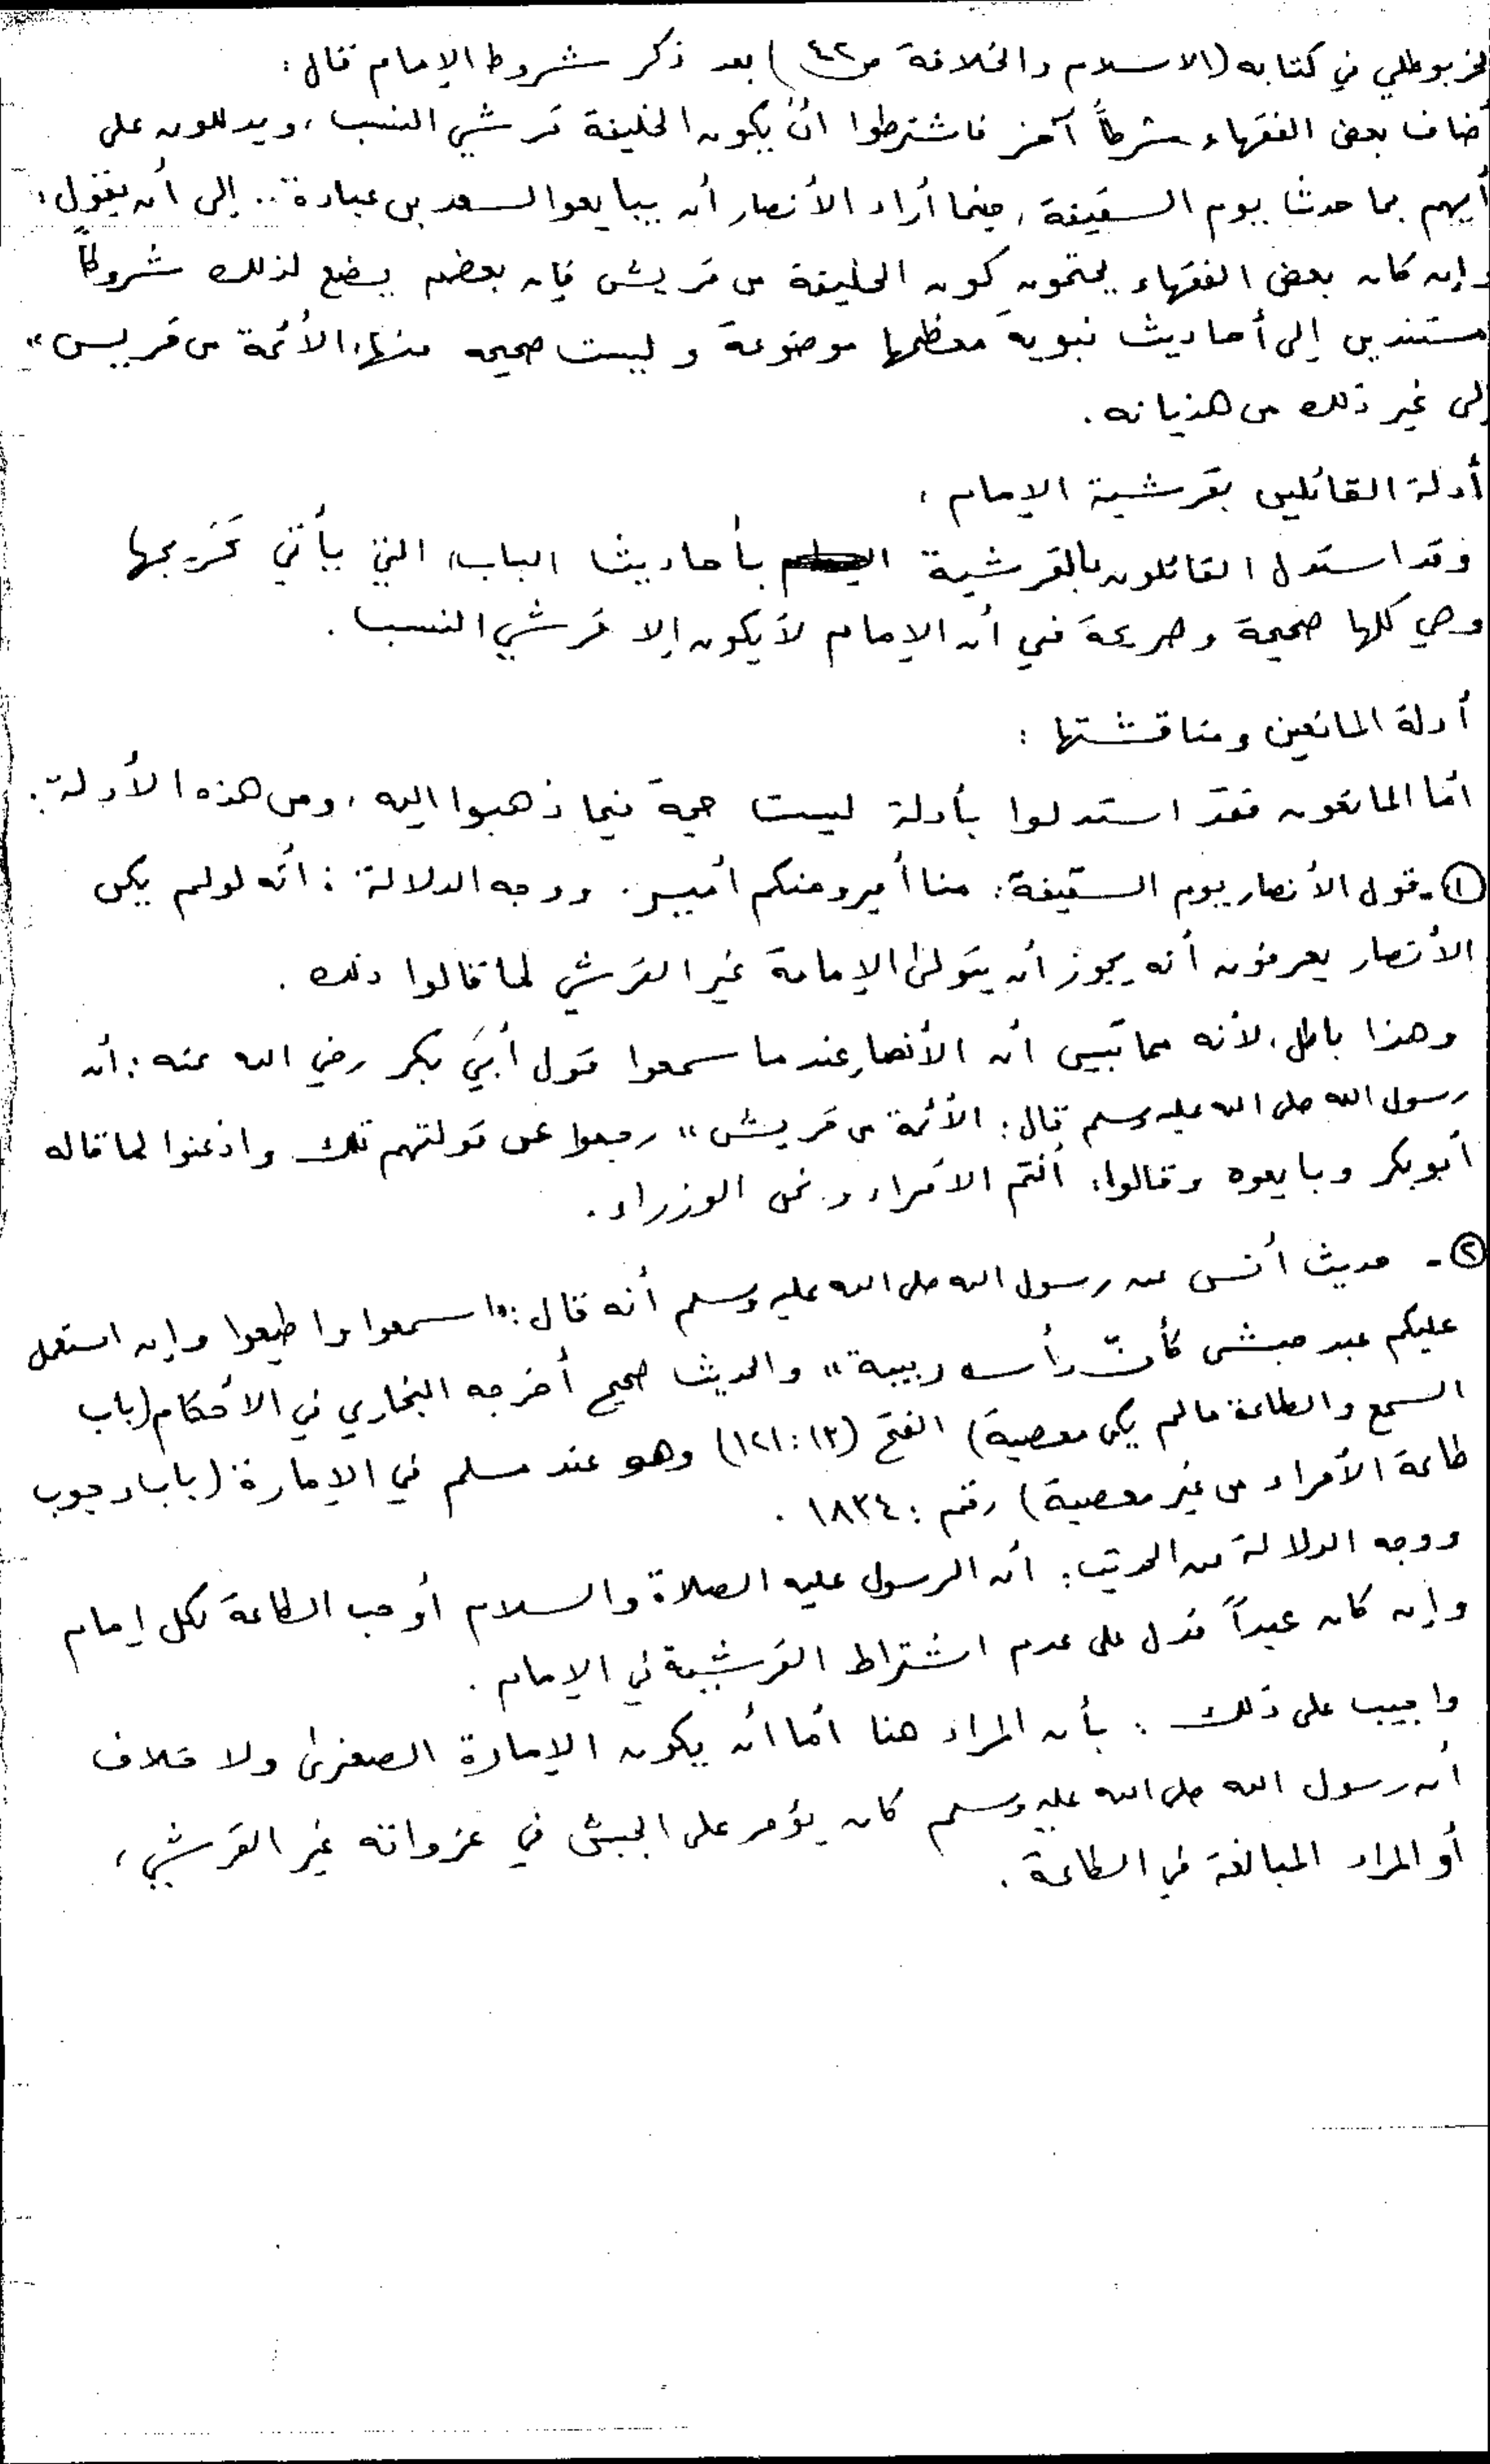 الخربوطلي في كتابه (الاسلام والخلافة ص ٤٢) بعد ذكر شروط الإمام قال:
أضاف بعض الفقهاء شرطاً آخر فاشترطوا أن يكون الخليفة قرشي النسب، ويدللون على
رأيهم بما حدث يوم السقيفة، حينما أراد الأنصار أن يبايعوا لسعد بن عبادة.. إلى أن يقول:
وإن كان بعض الفقهاء يحتمون كون الخليفة من قريش فإن بعضهم يضع لذلك شروطاً
مستندين إلى أحاديث نبوية معظمها موضوعة وليست صحيحه منها، الأئمة من قريش"
إلى غير ذلك من هذيانه.
أدلة القائلين بقرشية الإمام:
وقد استدل القائلون بالقرشية بأحاديث الباب، التي يأتي تخريجها
وهي كلها صحيحة وصريحة في أن الإمام لا يكون إلا قرشي النسب.
أدلة المانعين ومناقشتها:
أما المانعون فقد استدلوا بأدلة ليست حجة فيما ذهبوا اليه، ومن هذه الأدلة:
١- قول الأنصار يوم السقيفة: منا أمير ومنكم أمير. ووجه الدلالة: أنه لو لم يكن
الأنصار يعرفون أنه يجوز أن يتولى الإمامة غير القرشي لما قالوا ذلك.
وهذا باطل، لأنه مما تبين أن الأنصار عندما سمعوا قول أبي بكر رضي الله عنه: أن
رسول الله صلى الله عليه وسلم قال: الأئمة من قريش" رجعوا عن قولتهم تلك واذعنوا لما قاله
أبو بكر وبايعوه وقالوا: أنتم الأمراء ونحن الوزراء.
٢- حديث أنس عن رسول الله صلى الله عليه وسلم أنه قال: "اسمعوا واطيعوا وإن استعمل
عليكم عبد حبشي كأنّ رأسه زبيبة" والحديث صحيح أخرجه البخاري في الأحكام (باب
السمع والطاعة ما لم يكن معصية) الفتح (١٣: ١٢١) وهو عند مسلم في الإمارة (باب وجوب
طاعة الأمراء من غير معصية) رقم: ١٨٣٤.
ووجه الدلالة من الحديث: أن الرسول عليه الصلاة والسلام أوجب الطاعة لكل إمام
وإن كان عبداً فدل على عدم اشتراط القرشية في الإمام.
واجيب على ذلك: بأن المراد هنا أما أن يكون الإمارة الصغرى ولا خلاف
أن رسول الله صلى الله عليه وسلم كان يؤمر على الجيش في غزواته غير القرشي،
أو المراد المبالغة في الطاعة.